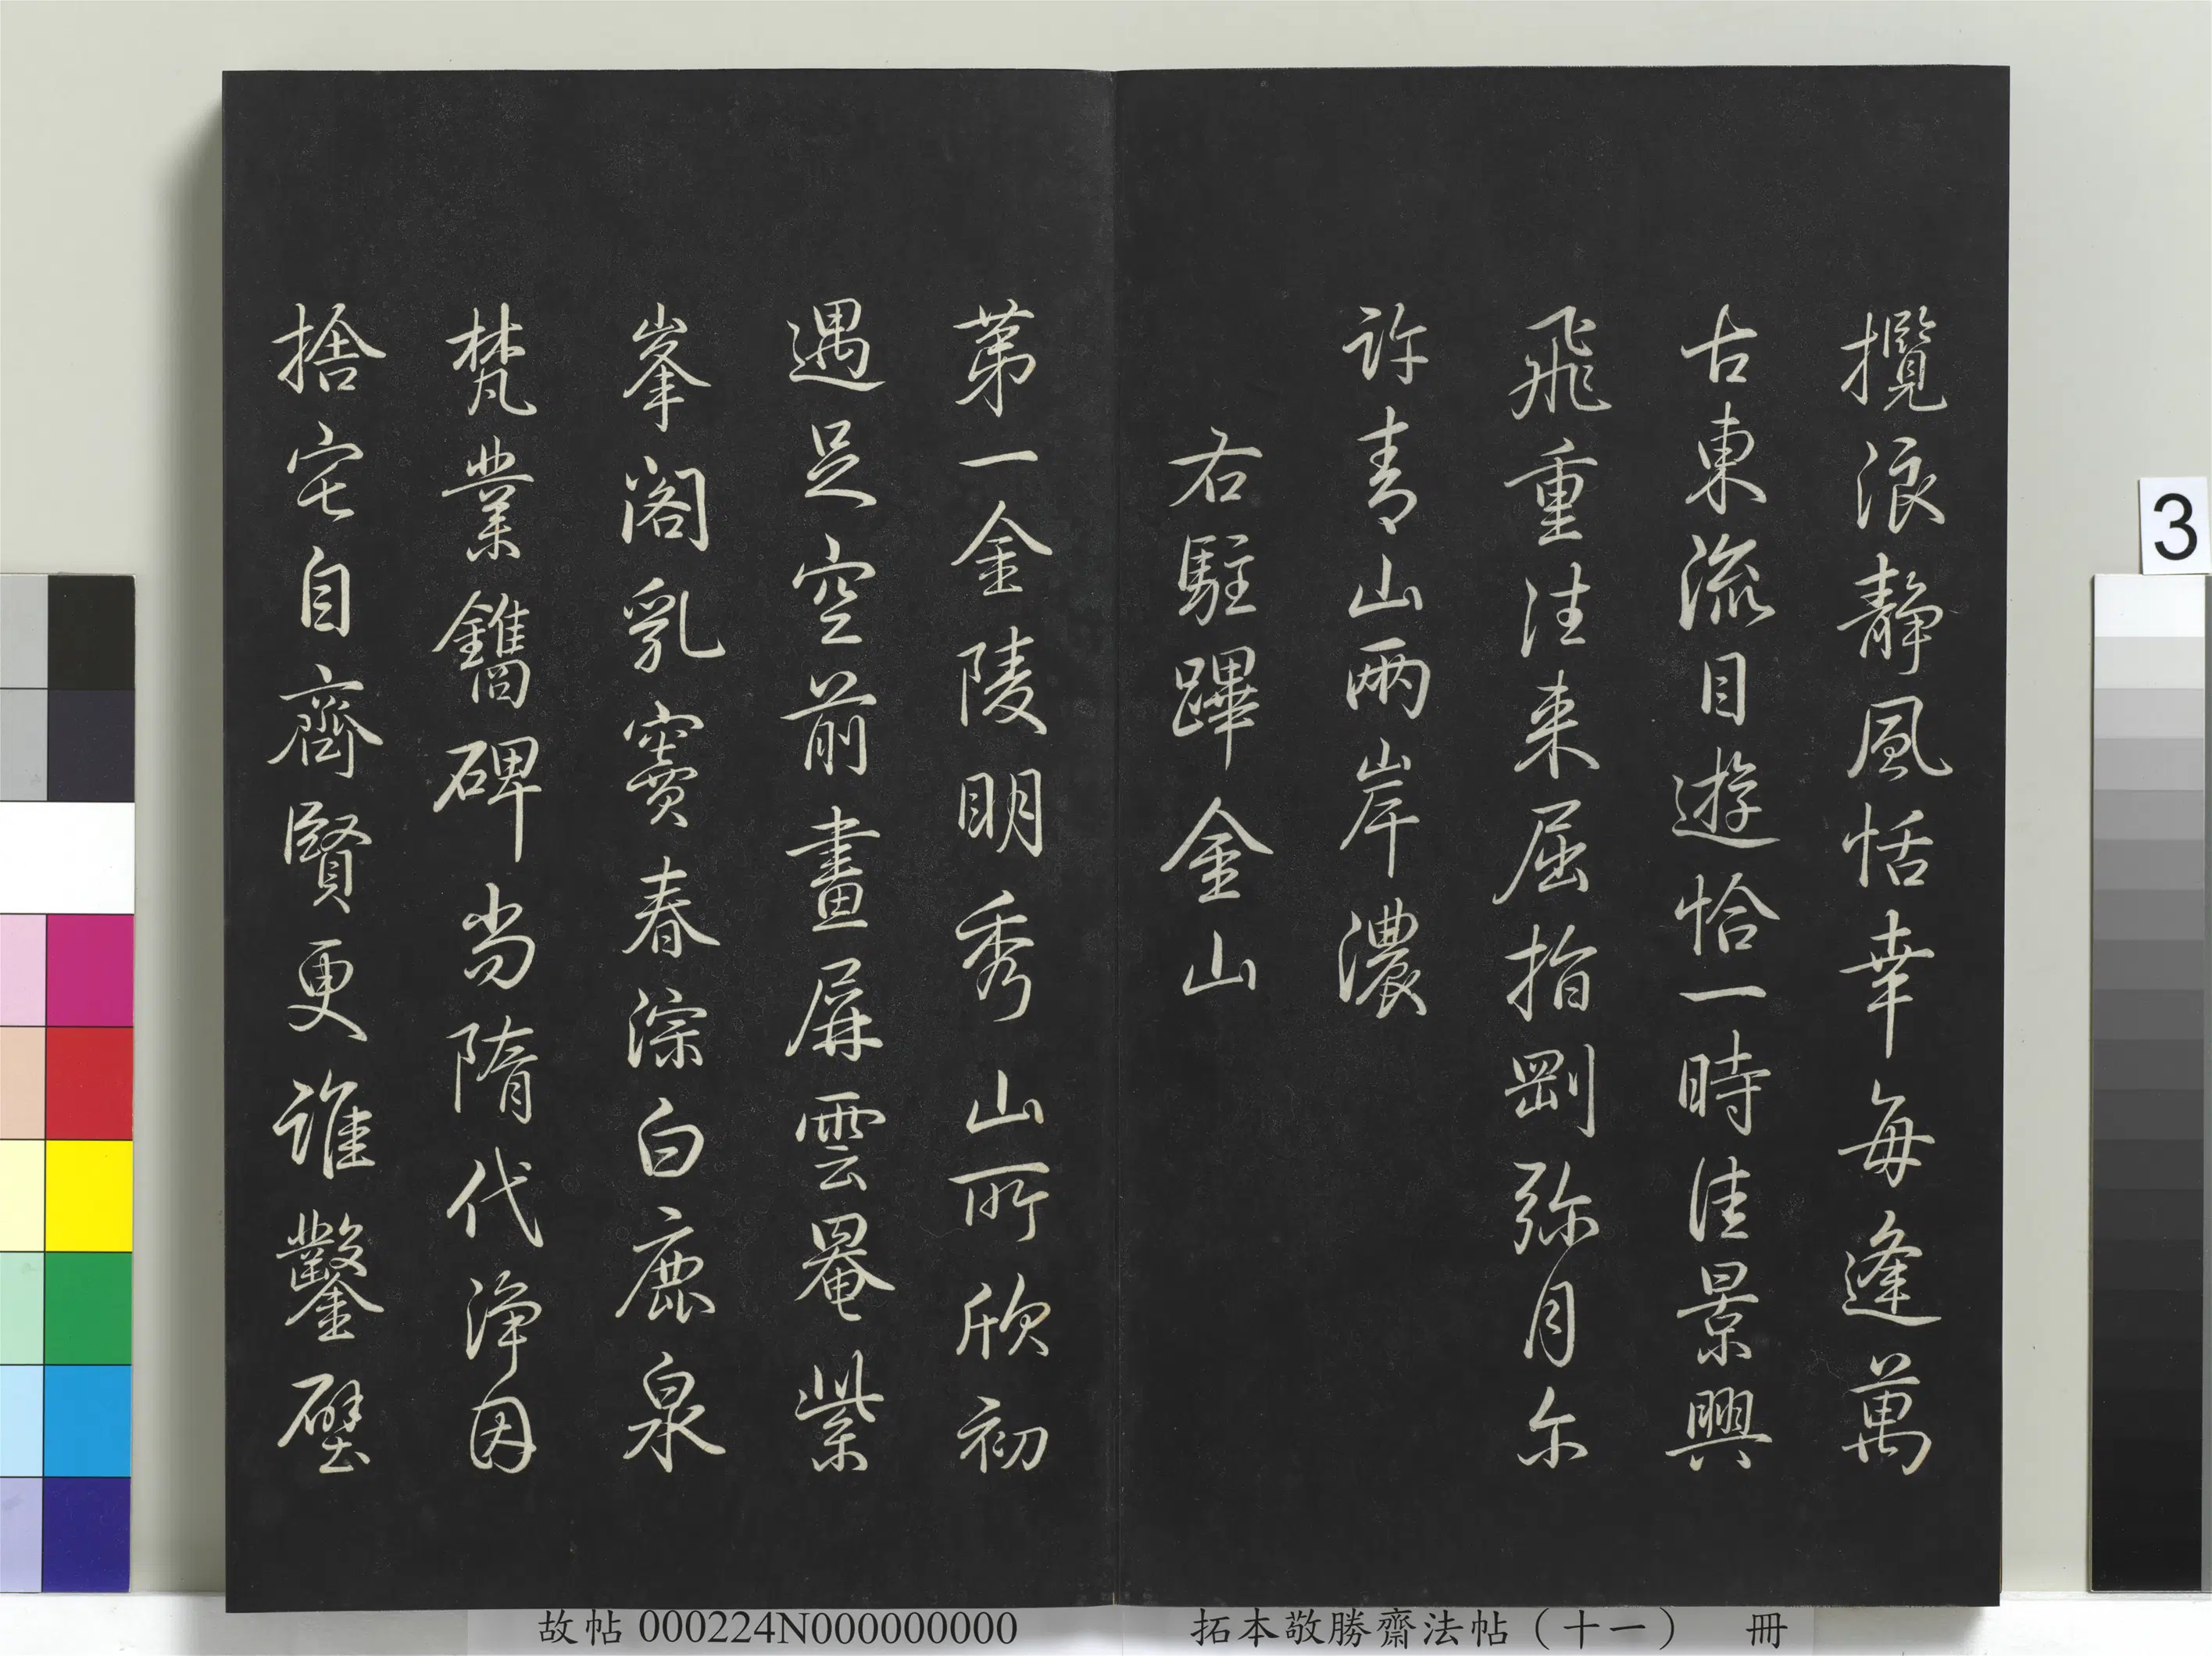 攬浪靜風恬幸每逢萬
古東流目遊恰一時佳景興
飛重往来屈指剛弥月尔
許青山兩岸濃
右駐蹕金山
苐一金陵明秀山所欣初
遇足空前畫屏雲罨紫
峯閣乳竇春淙白鹿泉
梵業鐫碑尚隋代淨因
捨宅自齊賢更誰鑿壁
故帖000224N000000000
拓本敬勝齋法帖（十一） 冊
3